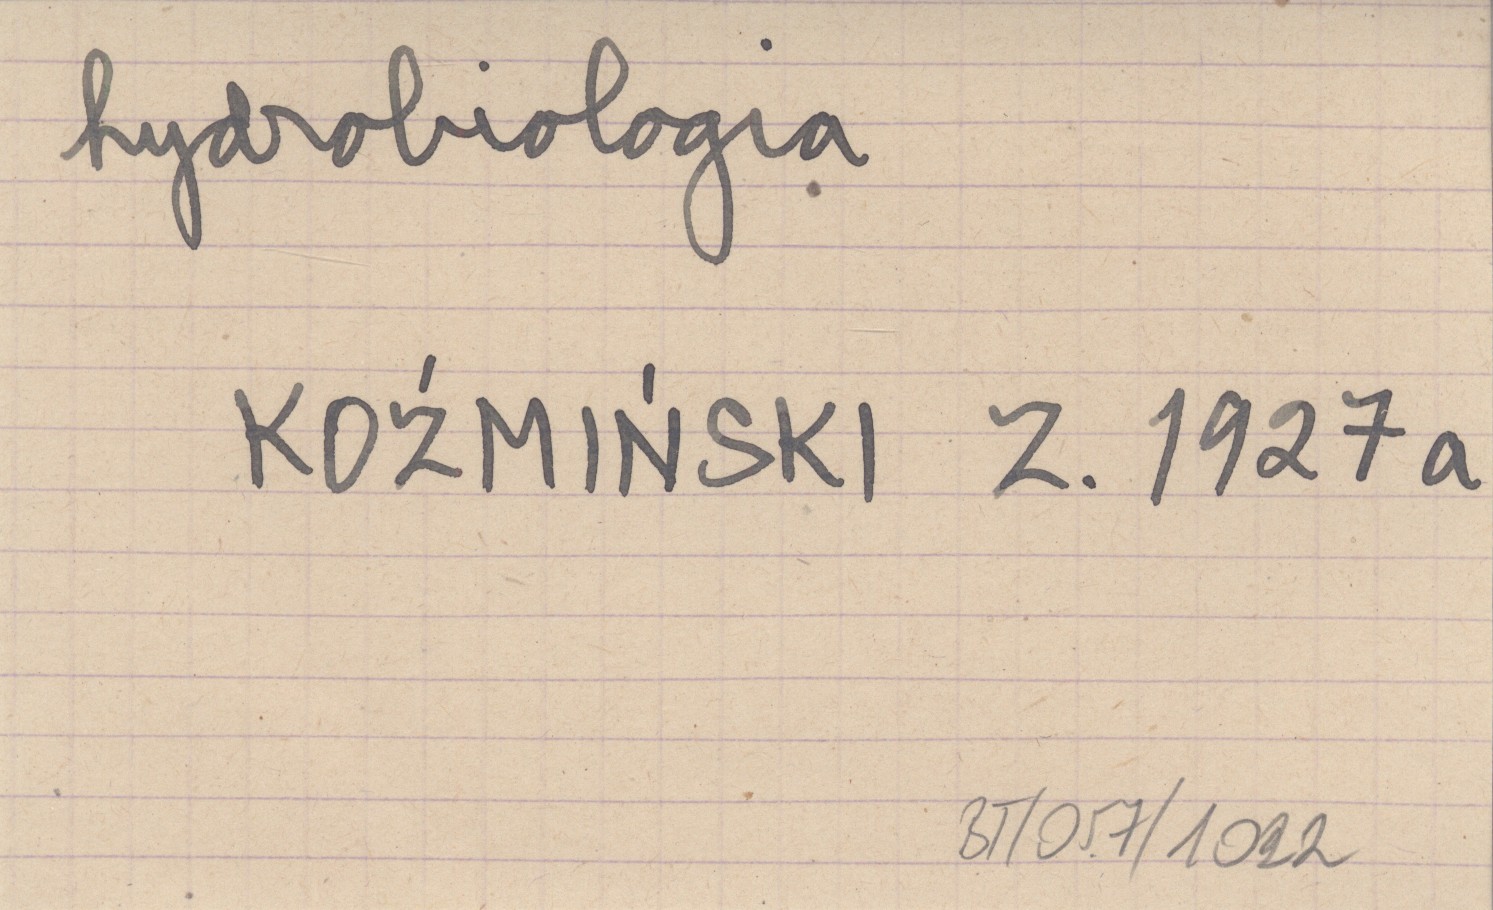 hydrobiologia
KOŹMIŃSKI Z. 1927a
BT/057/1022